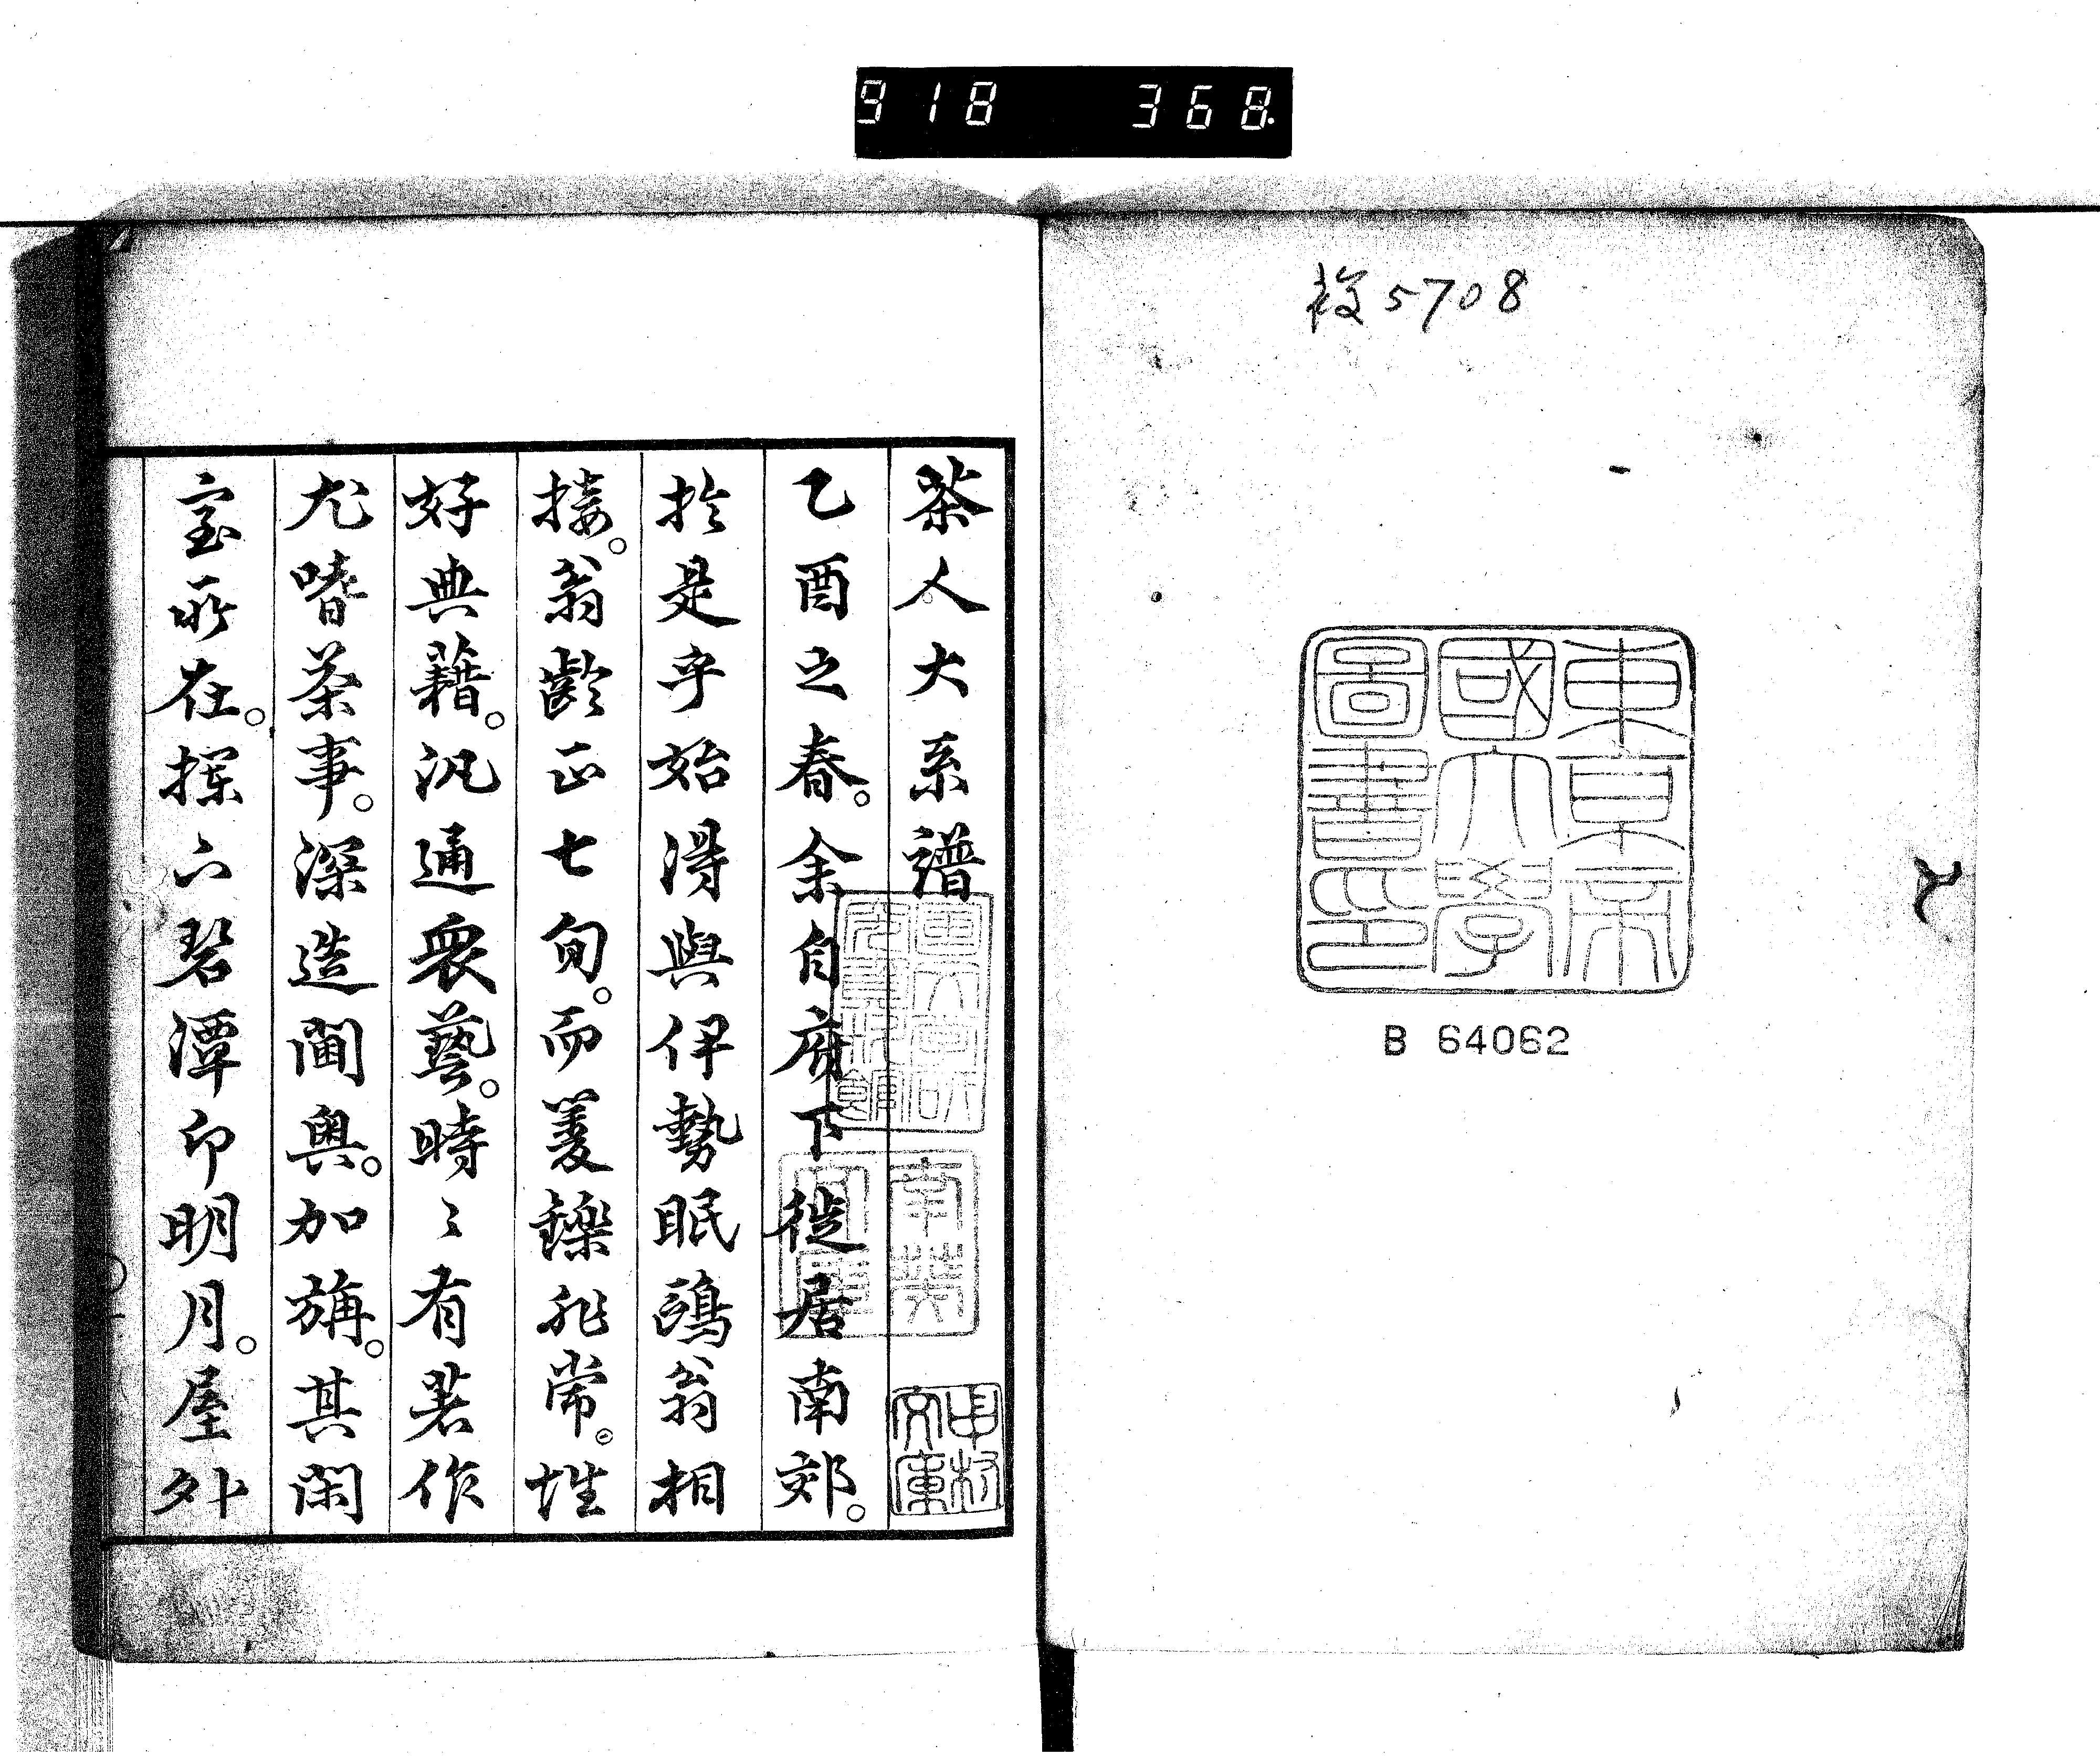 918 368.
5708
東京帝
國大學
圖書印
B 64062
茶人大系譜
乙酉之春。余自府下徙居南郊。
於是乎始得與伊勢眠鷗翁相
接。翁齡正七旬。而矍鑠非常。性
好典籍。汎通衆藝。時〻有著作
尤嗜茶事。深造閫奧。加旃。其閑
室所在。探六碧潭印明月。屋外
南葵
文庫
田村
文庫